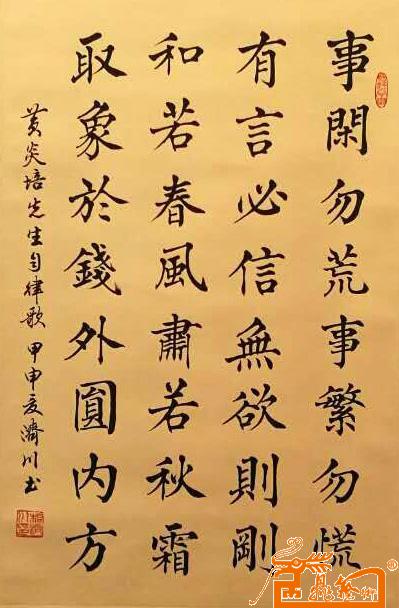 事閑勿荒事繁勿慌
有言必信無欲則剛
和若春風肅若秋霜
取象於錢外圓内方
黄炎培先生自律歌 甲申夏濟川书